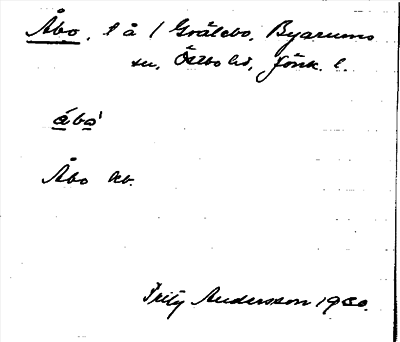 Åbo, t å / Grälebo, Byarums
sn, Östbo hd, Jönk. l.
åbo'
Åbo kb.
Fritz Andersson 1930.